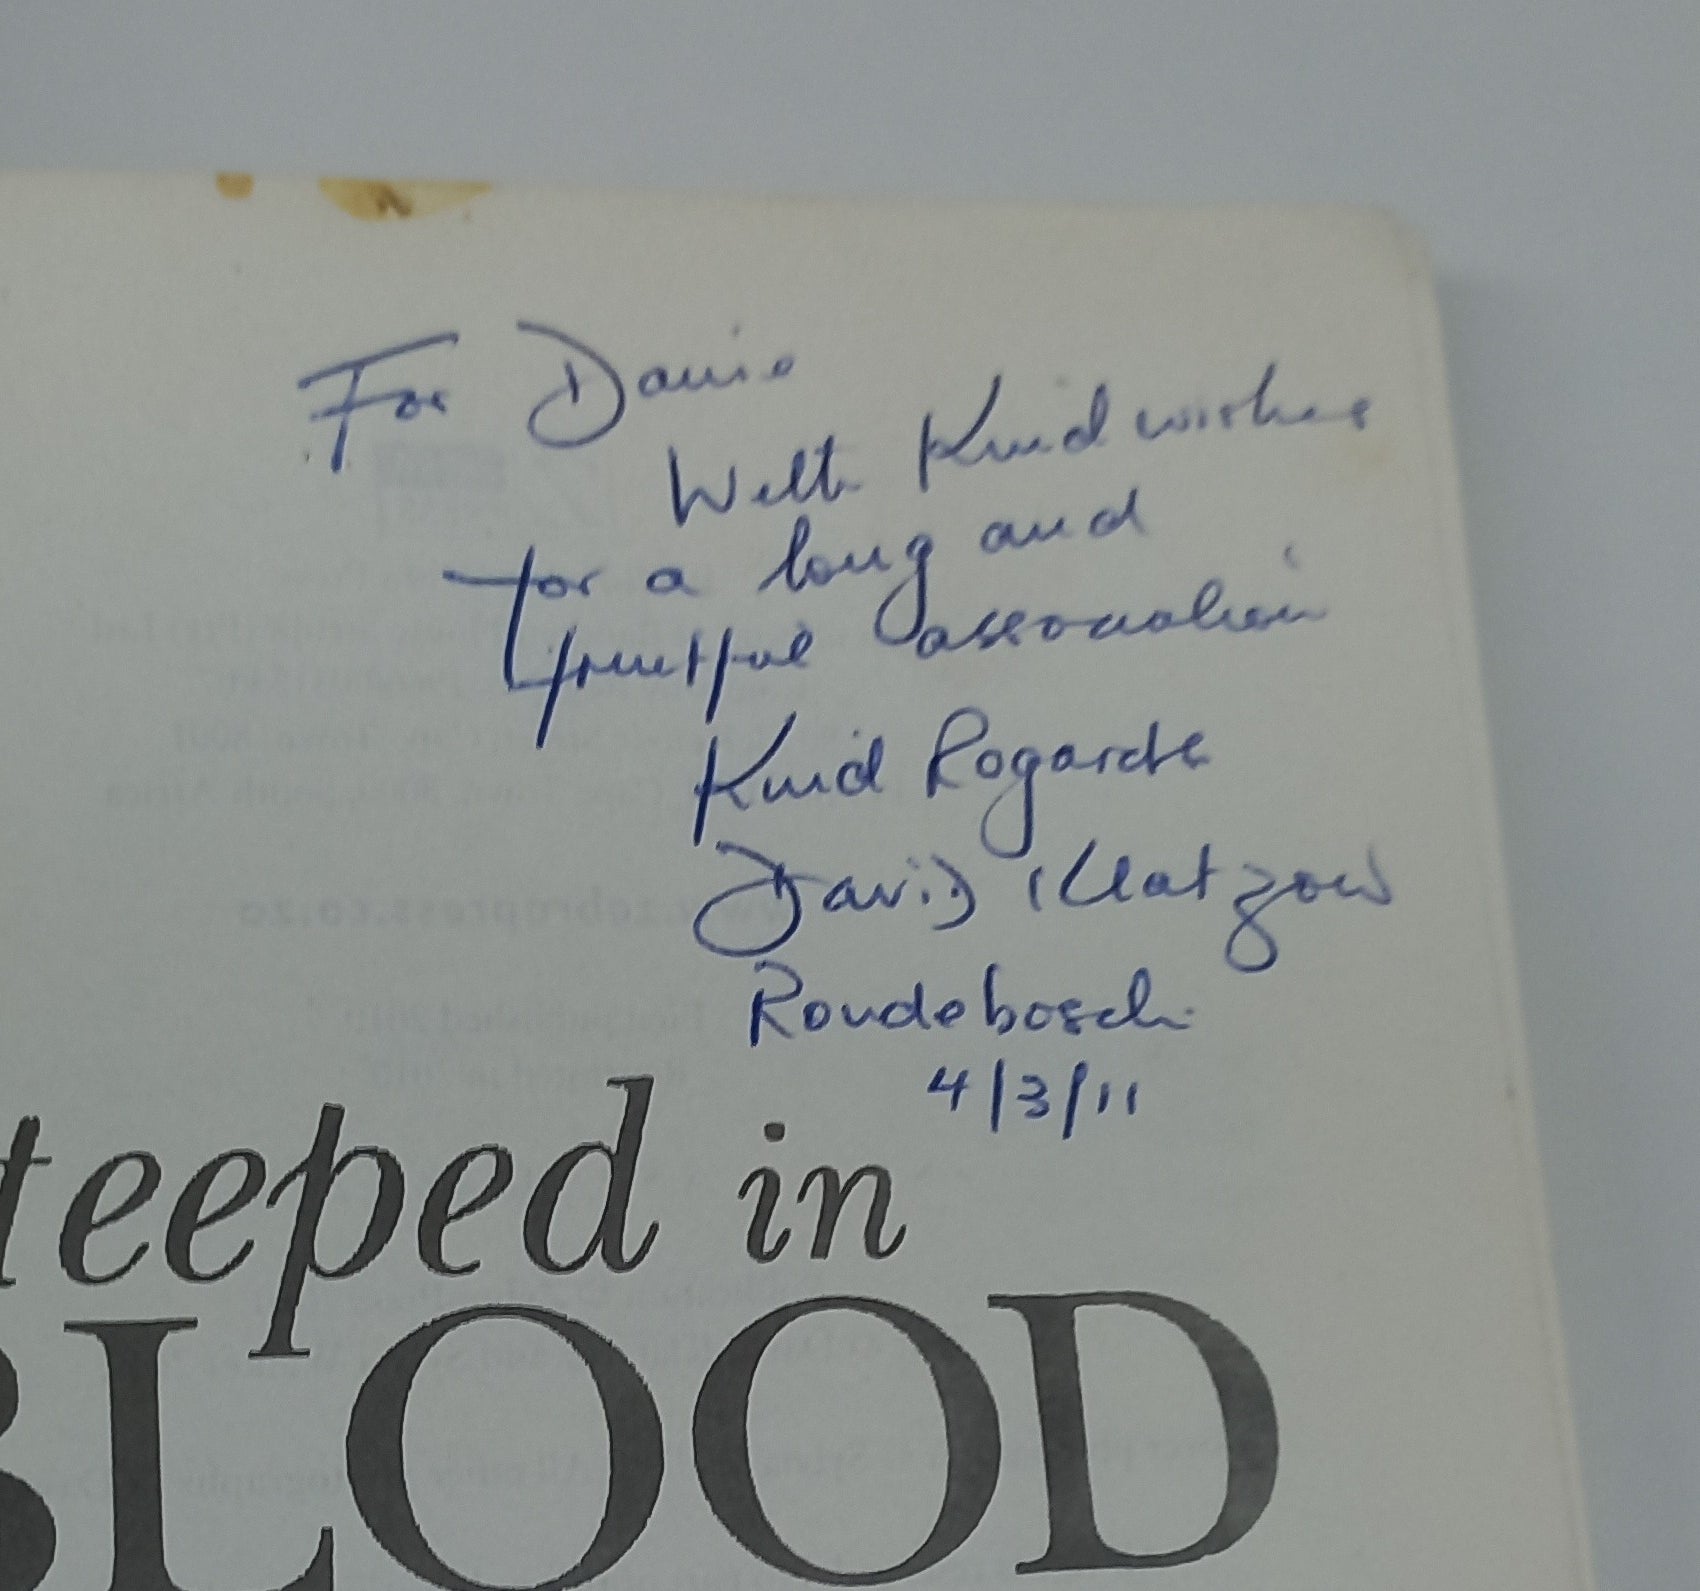 For Danie
With Kind wishes
for a long and
fruitful association
Kind Regards
David Klatzow
Rondebosch
4/3/11
teeped in
BLOOD
www.zebrapress.co.za